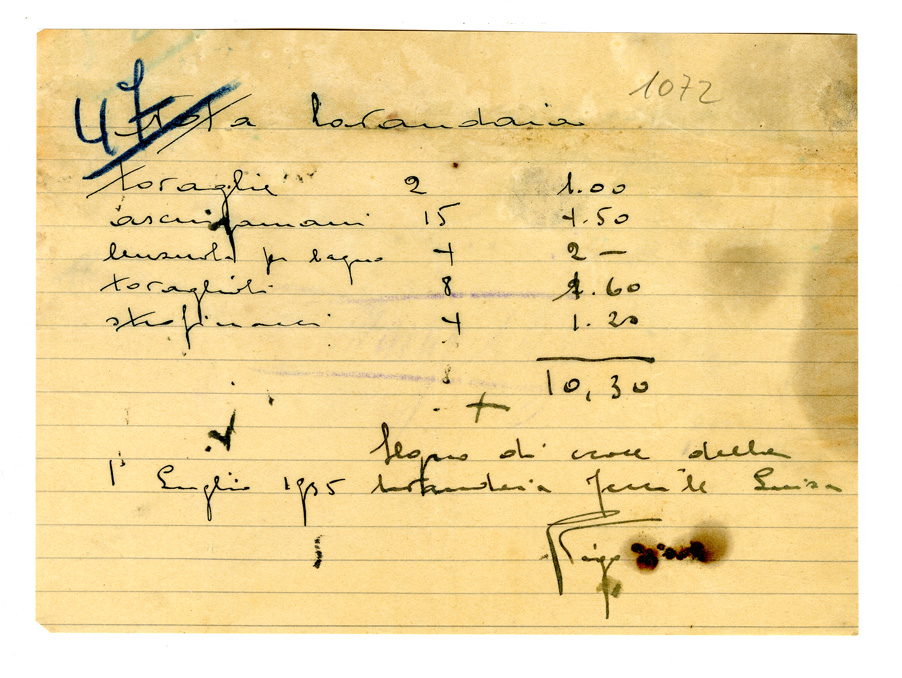 1072
47
Nota lavandaia
tovaglie 2 1.00
asciugamani 15 4.50
lenzuola per bagno 4 2 —
tovaglioli 8 1.60
strofinacci 4 1.20
10,30
+
Segno di croce della
1° Luglio 1935 lavandaia Luisa